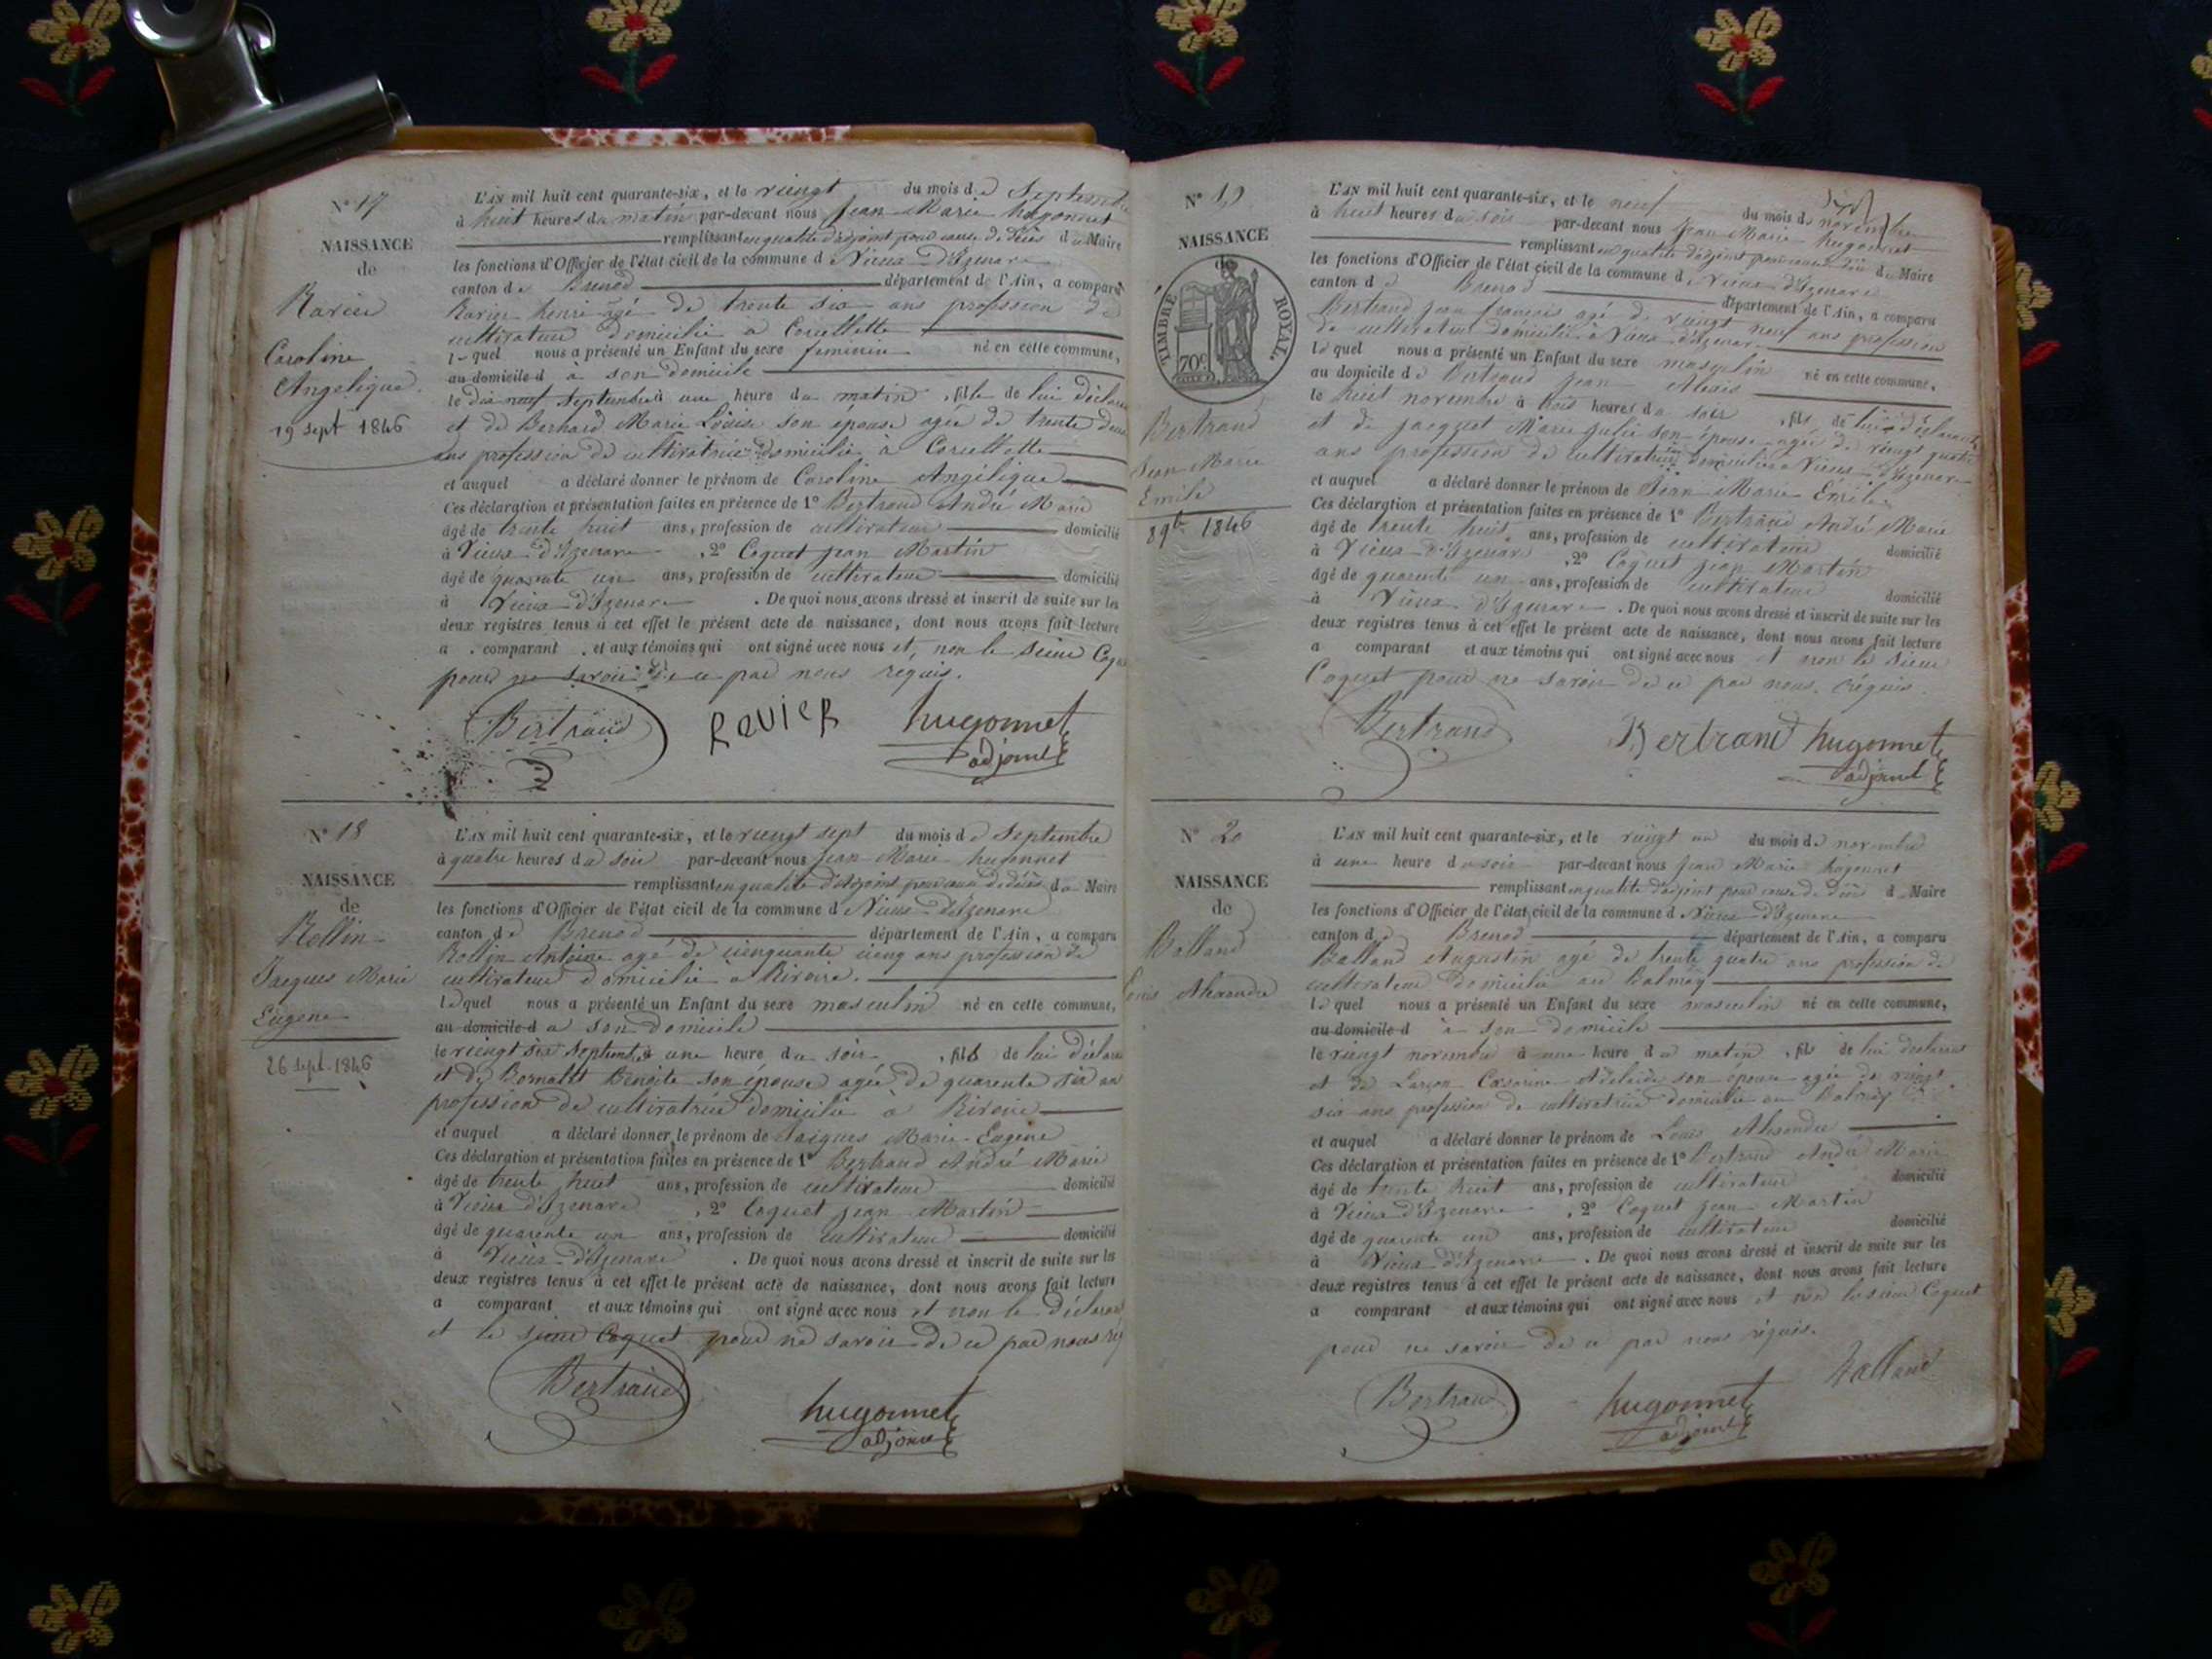 N° 17
NAISSANCE
de
Ravier
Caroline
Angelique
19 sept 1846
L'AN mil huit cent quarante-six, et le vingt du mois de Septembre
à huit heures du matin par-devant nous Jean Marie hugonnet
remplissant en qualité d'adjoint pour cause de décès du Maire
les fonctions d'Officier de l'état civil de la commune d Vieux d'Izenave
canton de Brenod département de l'Ain, a comparu
Ravier henri agé de trente six ans profession de
cultivateur domicilié a Corcellette
lequel nous a présenté un Enfant du sexe feminin né en cette commune,
au domicile d à son domicile
le dix neuf Septembre à une heure du matin, fille de lui déclarant
et de Bernard Marie Louise son épouse agée de trente deux
ans profession de cultivatrice domicilié à Corcellette
et auquel a déclaré donner le prénom de Caroline Angélique
Ces déclaration et présentation faites en présence de 1° Bertrand André Marie
âgé de trente huit ans, profession de cultivateur domicilié
à Vieux d'Izenave, 2° Coquet jean Martin
âgé de quarente un ans, profession de cultivateur domicilié
à Vieux d'Izenave. De quoi nous avons dressé et inscrit de suite sur les
deux registres tenus à cet effet le présent acte de naissance, dont nous avons fait lecture
a comparant et aux témoins qui ont signé avec nous et non le sieur Coquet
pour ne savoir de ce par nous requis.
Bertrand RAVIER hugonnet
adjoint
N° 18
NAISSANCE
de
Rollin
Jacques Marie
Eugene
26 sept. 1846
L'AN mil huit cent quarante-six, et le vingt sept du mois de Septembre
à quatre heures du soir par-devant nous jean Marie hugonnet
remplissant en qualité d'adjoint pour cause de décès du Maire
les fonctions d'Officier de l'état civil de la commune d Vieux d'Izenave
canton de Brenod département de l'Ain, a comparu
Rollin Antoine agé de cinquante cinq ans profession de
cultivateur domicilié a Riroire.
lequel nous a présenté un Enfant du sexe masculin né en cette commune,
au domicile d a son domicile
le vingt six Septembre à une heure du soir, fils de lui déclarant
et de Benoite son épouse agée de quarente six ans
profession de cultivatrice domicilié à
et auquel a déclaré donner le prénom de Jacques Marie Eugene
Ces déclaration et présentation faites en présence de 1° Bertrand André Marie
âgé de trente huit ans, profession de cultivateur domicilié
à Vieux d'Izenave, 2° Coquet jean Martin
âgé de quarente un ans, profession de cultivateur domicilié
à Vieux d'Izenave. De quoi nous avons dressé et inscrit de suite sur les
deux registres tenus à cet effet le présent acte de naissance, dont nous avons fait lecture
a comparant et aux témoins qui ont signé avec nous et non le déclarant
et le sieur Coquet pour ne savoir de ce par nous
Bertrand hugonnet
adjoint
N° 19
NAISSANCE
de
TIMBRE ROYAL.
70c
Bertrand
Jean Marie
Emile
8 9b 1846
L'AN mil huit cent quarante-six, et le neuf du mois de novembre
à huit heures du soir par-devant nous Jean Marie hugonnet
remplissant en qualité d'adjoint pour cause de décès du Maire
les fonctions d'Officier de l'état civil de la commune d Vieux d'Izenave
canton de Brenod département de l'Ain, a comparu
Bertrand jean françois agé de vingt neuf ans profession
de cultivateur domicilié à Vieux d'Izenave
lequel nous a présenté un Enfant du sexe masculin né en cette commune,
au domicile de Bertrand jean
le huit novembre à trois heures du soir, fils de lui déclarant
et de jacquet Marie Julie son épouse agée de vingt quatre
ans profession de cultivatrice domiciliée a Vieux d'Izenave
et auquel a déclaré donner le prénom de Jean Marie Emile
Ces déclaration et présentation faites en présence de 1° Bertrand André Marie
âgé de trente huit ans, profession de cultivateur domicilié
à Vieux d'Izenave, 2° Coquet jean Martin
âgé de quarente un ans, profession de cultivateur domicilié
à Vieux d'Izenave. De quoi nous avons dressé et inscrit de suite sur les
deux registres tenus à cet effet le présent acte de naissance, dont nous avons fait lecture
a comparant et aux témoins qui ont signé avec nous et non le sieur
Coquet pour ne savoir de ce par nous requis.
Bertrand Bertrand hugonnet
adjoint
N° 20
NAISSANCE
de
Balland
Louis Alexandre
L'AN mil huit cent quarante-six, et le vingt un du mois de novembre
à une heure du soir par-devant nous jean Marie hugonnet
remplissant en qualité d'adjoint pour cause de décès d Maire
les fonctions d'Officier de l'état civil de la commune d Vieux d'Izenave
canton de Brenod département de l'Ain, a comparu
Balland Augustin agé de trente quatre ans profession de
cultivateur domicilié au Balmay
lequel nous a présenté un Enfant du sexe masculin né en cette commune,
au domicile d à son domicile
le vingt novembre à une heure du matin, fils de lui déclarant
et de Adelaide son épouse agée de vingt
six ans profession de cultivatrice domiciliée au Balmay
et auquel a déclaré donner le prénom de Louis Alexandre
Ces déclaration et présentation faites en présence de 1° Bertrand André Marie
âgé de trente huit ans, profession de cultivateur domicilié
à Vieux d'Izenave, 2° Coquet jean Martin
âgé de quarente un ans, profession de cultivateur domicilié
à Vieux d'Izenave. De quoi nous avons dressé et inscrit de suite sur les
deux registres tenus à cet effet le présent acte de naissance, dont nous avons fait lecture
a comparant et aux témoins qui ont signé avec nous et non le sieur Coquet
pour ne savoir de ce par nous requis.
Bertrand hugonnet Balland
adjoint